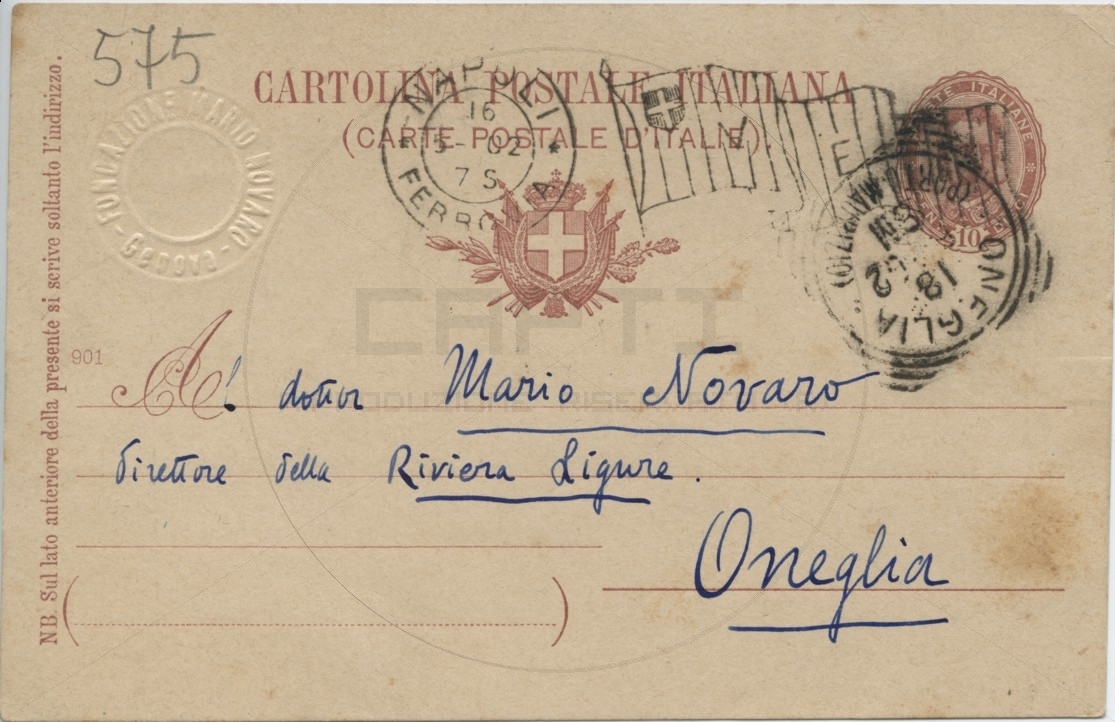 575
CARTOLINA POSTALE ITALIANA
(CARTE POSTALE D'ITALIE).
NAPOLI
16
5- 02
7 S
FERROVIA
V
E
10
ONEGLIA
(PORTO MAURIZIO)
18
FONDAZIONE MARIO NOVARO
- Genova -
NB. Sul lato anteriore della presente si scrive soltanto l'indirizzo.
901
CAPTI
Al dottor Mario Novaro
direttore della Riviera Ligure.
Oneglia